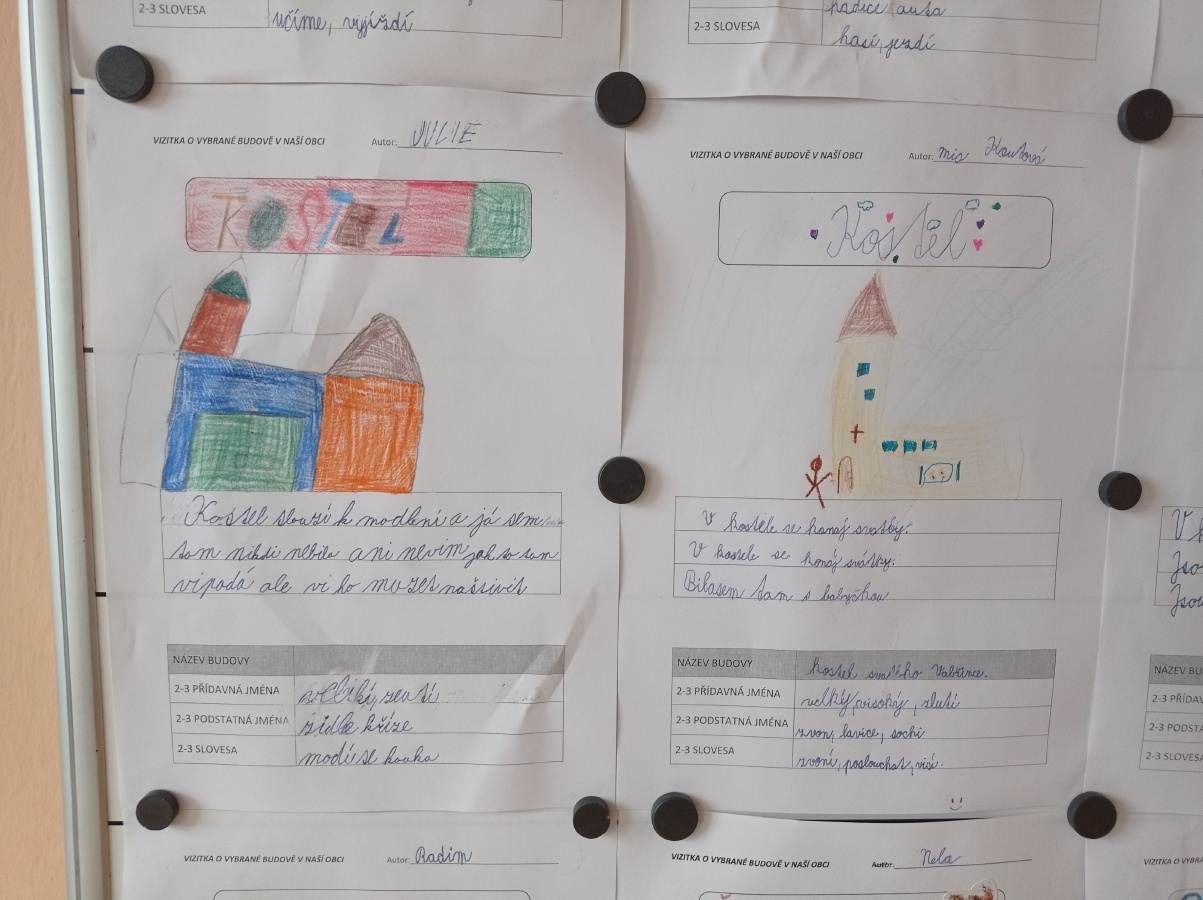 2-3 SLOVESA
učíme, vyjíždí
hadice, auta
2-3 SLOVESA
hasí, jezdí
VIZITKA O VYBRANÉ BUDOVĚ V NAŠÍ OBCI
Autor: JULIE
KOSTEL
Kostel slouží k modlení a já sem
tam nikdi nebila ani nevím jak to tam
vipadá ale vi ho muzes naštívit
NÁZEV BUDOVY
2-3 PŘÍDAVNÁ JMÉNA
2-3 PODSTATNÁ JMÉNA
židle kříze
2-3 SLOVESA
modlí se kouka
VIZITKA O VYBRANÉ BUDOVĚ V NAŠÍ OBCI
Autor: mia
Kostel
V kostele se konaj svatby.
V kostele se konáj svátky.
Bilasem tam s babyčkou
NÁZEV BUDOVY
kostel svatího Vavřince.
2-3 PŘÍDAVNÁ JMÉNA
velký, visoký, zlutí
2-3 PODSTATNÁ JMÉNA
zvon, lavice, sochi
2-3 SLOVESA
zvoní, poslouchat, visí.
NÁZEV BU
2-3 PŘÍDA
2-3 PODSTA
2-3 SLOVESA
VIZITKA O VYBRANÉ BUDOVĚ V NAŠÍ OBCI
Autor: Radim
VIZITKA O VYBRANÉ BUDOVĚ V NAŠÍ OBCI
Autor: Nela
VIZITKA O VYBRA